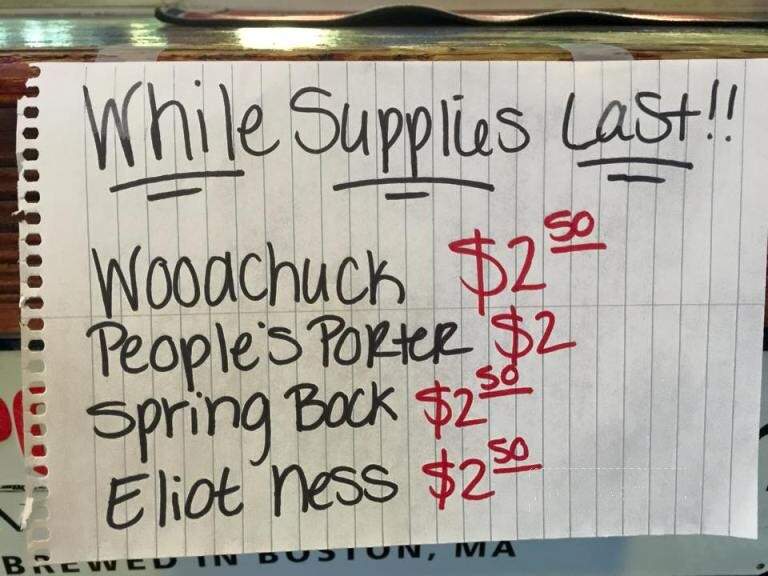 While Supplies Last!!
Woodchuck $2 50
People's Porter $2
Spring Bock $2 50
Eliot Ness $2 50
BREWED IN BOSTON, MA